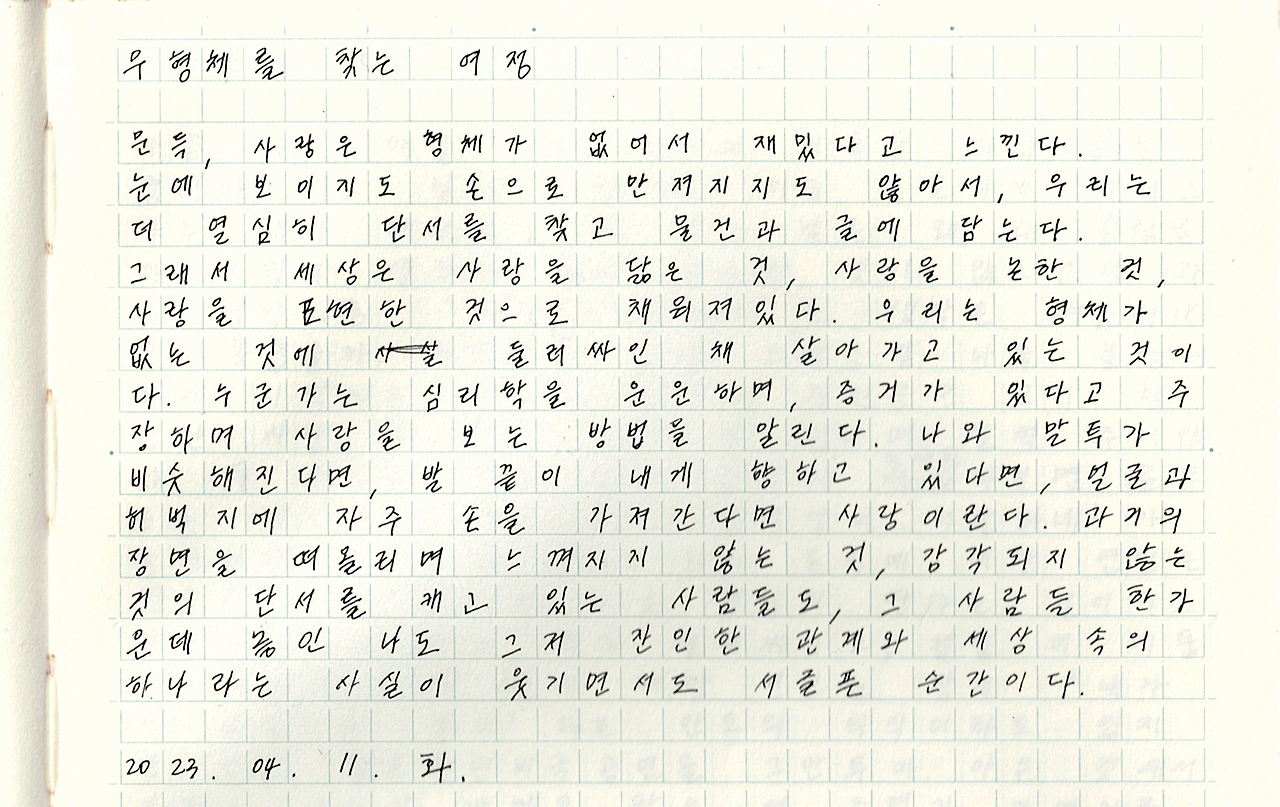 무형체를 찾는 여정
문득, 사랑은 형체가 없어서 재밌다고 느낀다.
눈에 보이지도 손으로 만져지지도 않아서, 우리는
더 열심히 단서를 찾고 물건과 글에 담는다.
그래서 세상은 사랑을 닮은 것, 사랑을 논한 것,
사랑을 표현한 것으로 채워져있다. 우리는 형체가
없는 것에 둘러싸인 채 살아가고 있는 것이
다. 누군가는 심리학을 운운하며, 증거가 있다고 주
장하며 사랑을 보는 방법을 알린다. 나와 말투가
비슷해진다면, 발 끝이 내게 향하고 있다면, 얼굴과
허벅지에 자주 손을 가져간다면 사랑이란다. 과거의
장면을 떠올리며 느껴지지 않는 것, 감각되지 않는
것의 단서를 캐고 있는 사람들도, 그 사람들 한가
운데 놓인 나도 그저 잔인한 관계와 세상 속의
하나라는 사실이 웃기면서도 서글픈 순간이다.
2023. 04. 11. 화.